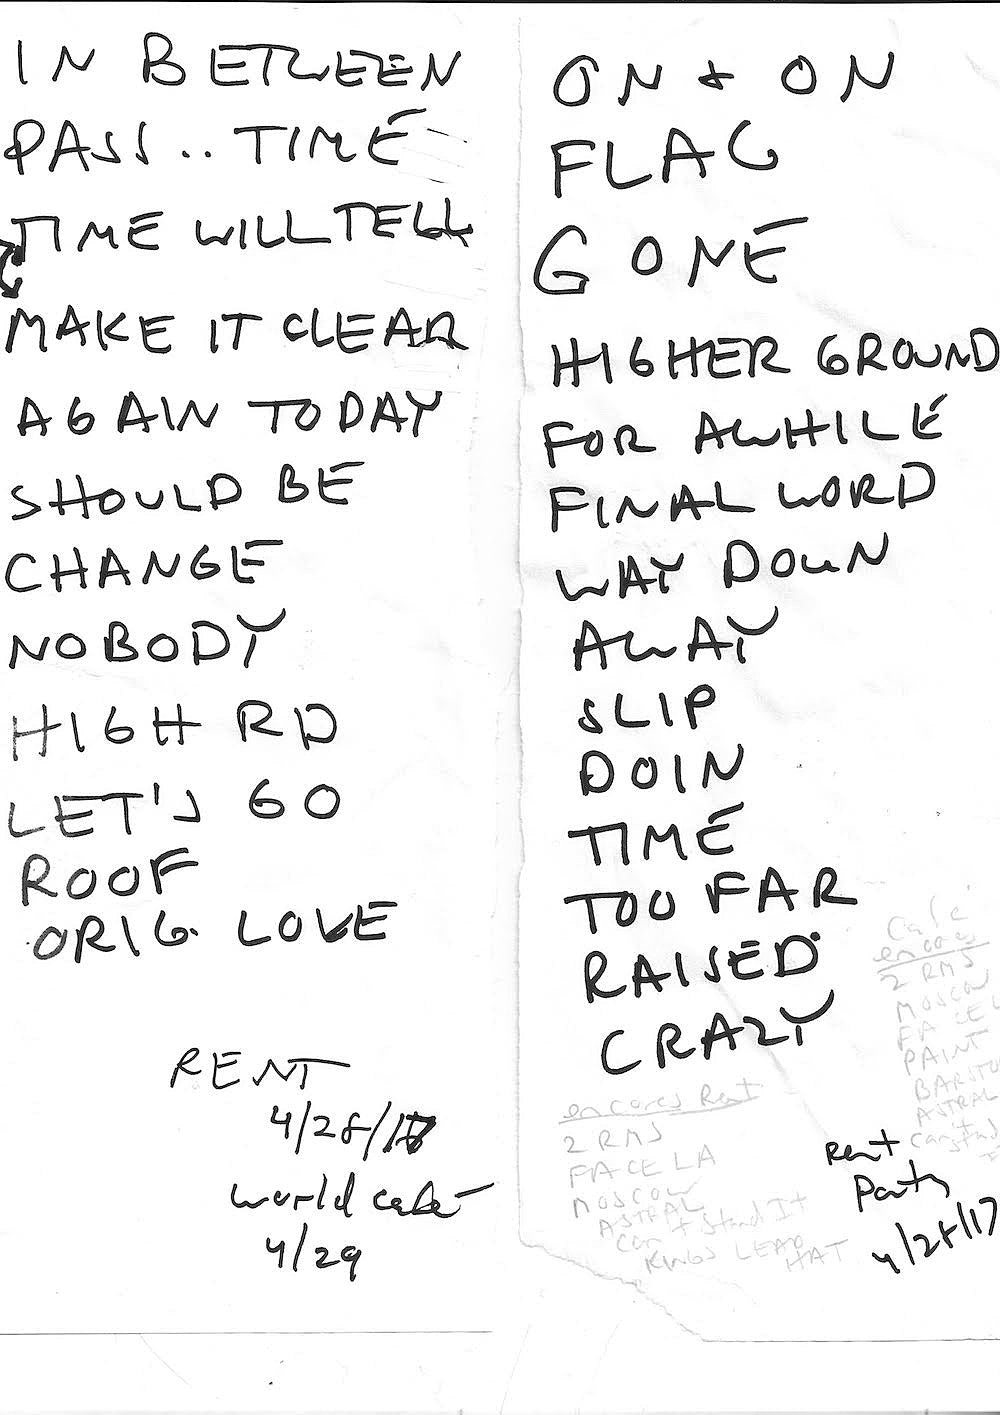 IN BETWEEN
PASS.. TIME
TIME WILL TELL
MAKE IT CLEAR
AGAIN TODAY
SHOULD BE
CHANGE
NOBODY
HIGH RD
LET'S GO
ROOF
ORIG. LOVE
RENT
4/28/17
world cafe
4/29
ON + ON
FLAG
GONE
HIGHER GROUND
FOR AWHILE
FINAL WORD
WAY DOWN
AWAY
SLIP
DOIN
TIME
TOO FAR
RAISED
CRAZY
encores Rent
2 RMS
FACE LA
MOSCOW
ASTRAL
can't Stand It
KINGS LEAD
HAT
Cafe
encores
2 RMS
MOSCOW
FACE L
PAINT
BARSTO
ASTRAL
can't stand
Rent
Party
4/28/17